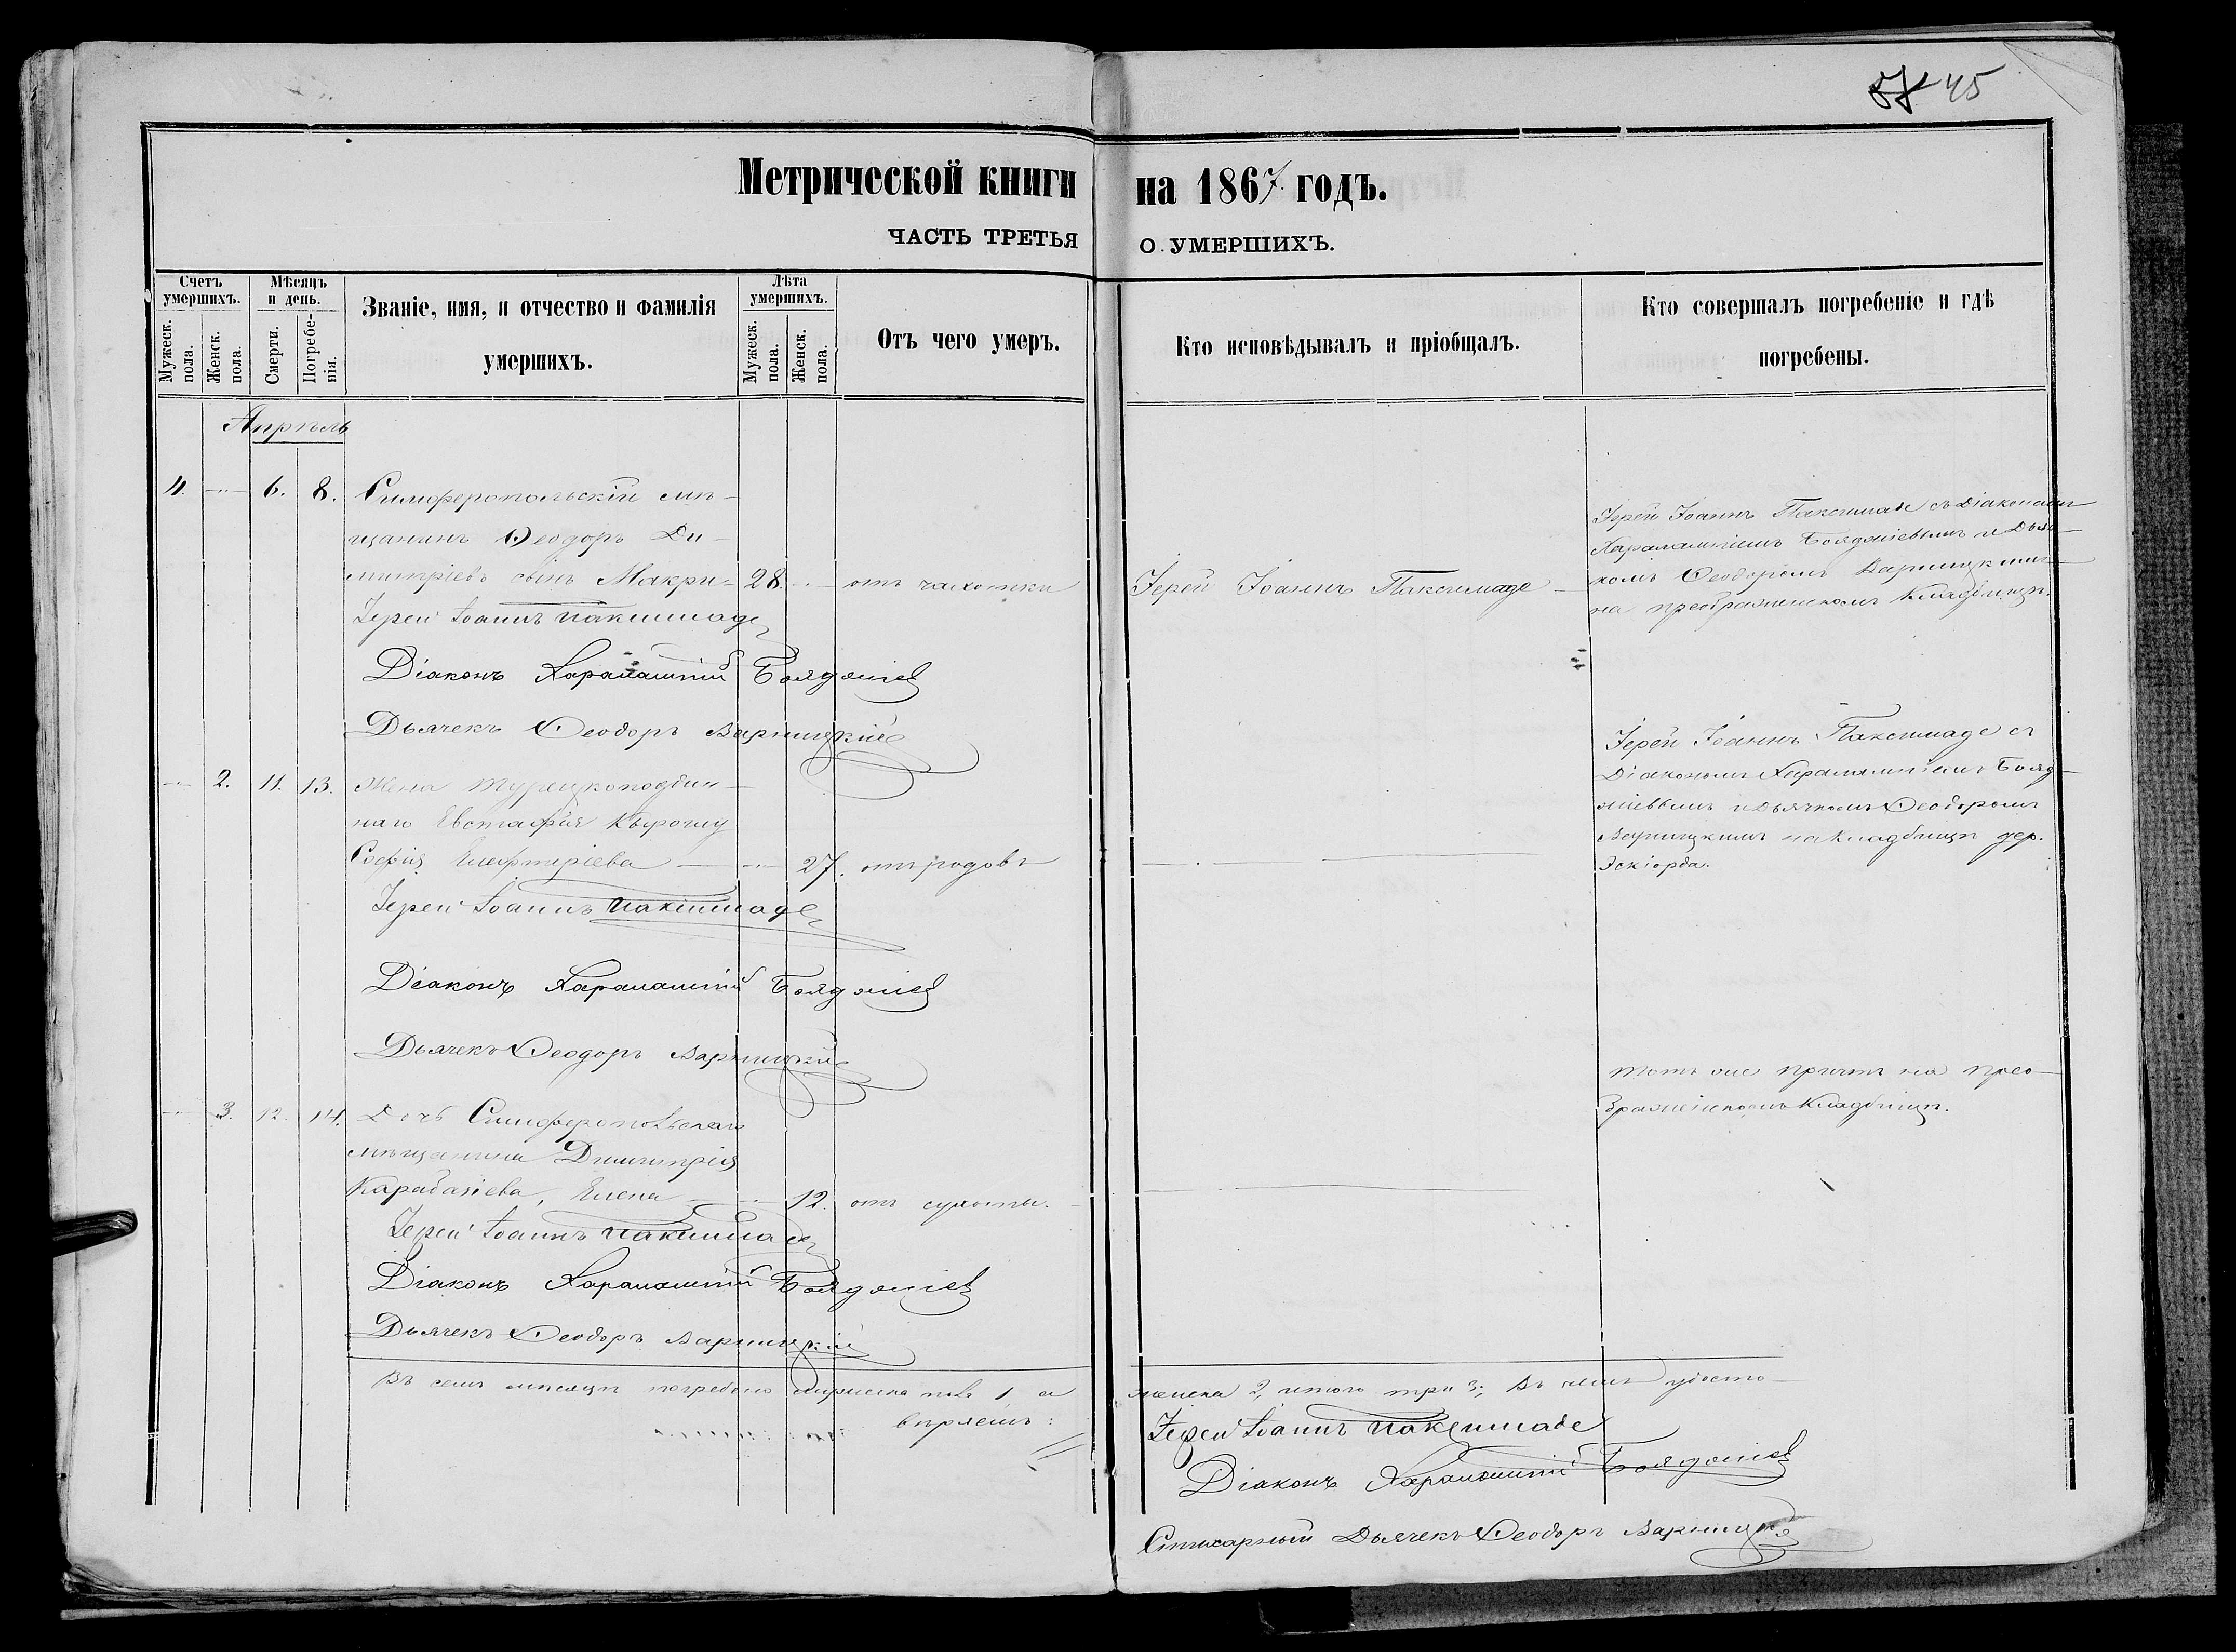 57 45
Метрической книги на 1867. годъ.
ЧАСТЬ ТРЕТЬЯ О УМЕРШИХЪ.
Счетъ умершихъ.
Мужеск. пола.
Женск. пола.
Мѣсяцъ и день.
Смерти.
Погребенія.
Званіе, имя, и отчество и фамилія
умершихъ.
Лѣта умершихъ.
Мужеск. пола.
Женск. пола.
Отъ чего умеръ.
Кто исповѣдывалъ и пріобщалъ.
Кто совершалъ погребеніе и гдѣ
погребены.
Апрѣль
4. — 6. 8. Симферопольскій мѣ-
щанинъ Ѳеодоръ Ди-
митріевъ сынъ Макри- 28. — отъ чахотки
Іерей Іоаннъ Паксимаде
Діаконъ Харалампій Бояджіев
Дьячекъ Ѳеодоръ Варницкій
Іерей Іоаннъ Паксимаде
Іерей Іоаннъ Паксимаде съ Діакономъ
Харалампіемъ Бояджіевымъ и Дья-
комъ Ѳеодоромъ Варницкимъ
на преображенскомъ Кладбищѣ.
— 2. 11. 13. Жена Турецкоподдан-
наго Евстафія
Софія Елефтеріева — 27. отъ родовъ
Іерей Іоаннъ Паксимаде
Діаконъ Харалампій Бояджіев
Дьячекъ Ѳеодоръ Варницкій
Іерей Іоаннъ Паксимаде съ
Діакономъ Харалампіемъ Бояд-
жіевымъ и Дьячкомъ Ѳеодоромъ
Варницкимъ на Кладбищѣ дер.
Эскіорда.
— 3. 12. 14. Дочь Симферопольскаго
мѣщанина Димитрія
Карабаѕіева, Елена — 12. отъ сухоты.
Іерей Іоаннъ Паксимаде
Діаконъ Харалампій Бояджіев
Дьячекъ Ѳеодоръ Варницкій
тотъ же причтъ на прео-
браженскомъ Кладбищѣ.
Въ семъ мѣсяцѣ погребено мужеска пола 1, а женска 2, итого три 3; Въ чемъ удосто-
вѣряемъ:
Іерей Іоаннъ Паксимаде
Діаконъ Харалампій Бояджіев
Стихарный Дьячекъ Ѳеодоръ Варницкій